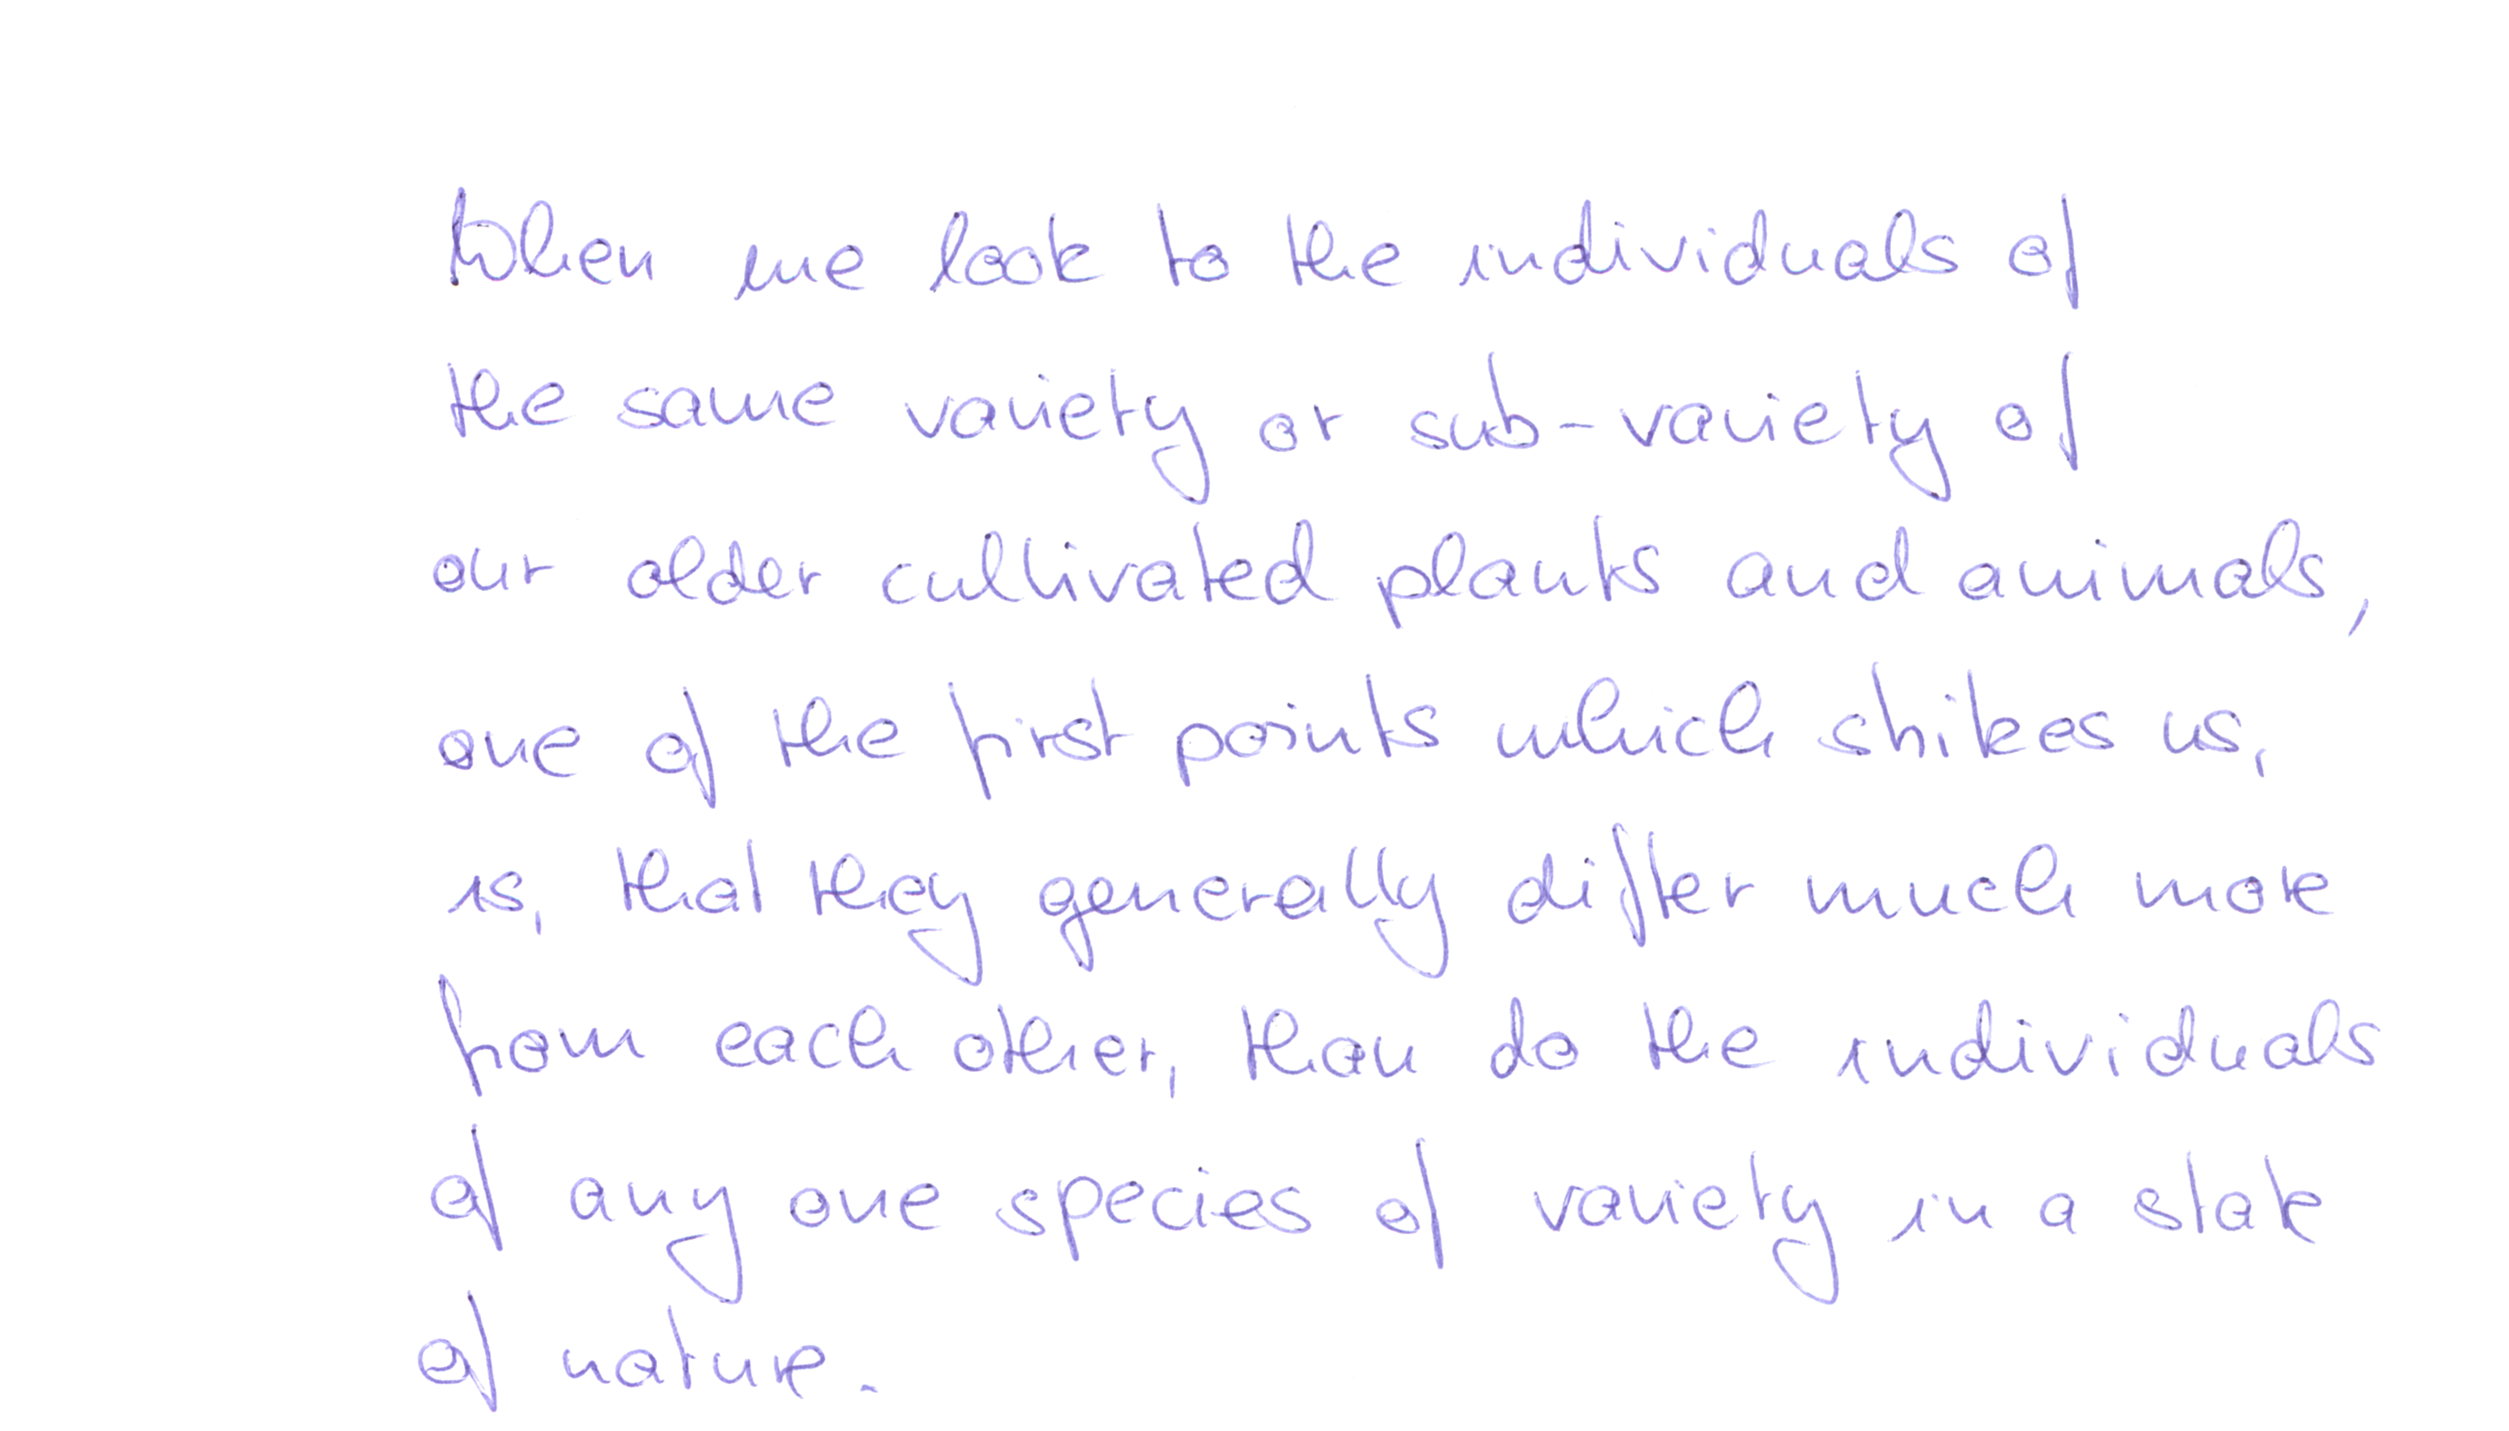 When we look to the individuals of
the same variety or sub-variety of
our older cultivated plants and animals,
one of the first points which strikes us,
is, that they generally differ much more
from each other, than do the individuals
of any one species of variety in a state
of nature.